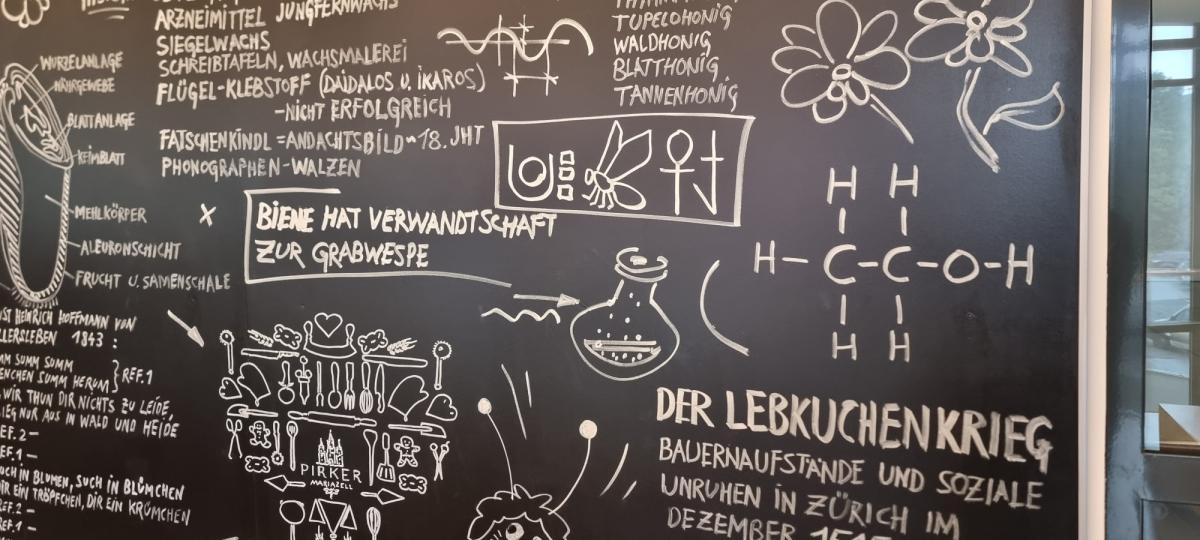 ARZNEIMITTEL JUNGFERNWACHS
SIEGELWACHS
SCHREIBTAFELN, WACHSMALEREI
FLÜGEL-KLEBSTOFF (DAIDALOS U. IKAROS)
-NICHT ERFOLGREICH
FATSCHENKINDL = ANDACHTSBILD ~ 18. JHT
PHONOGRAPHEN-WALZEN
TUPELOHONIG
WALDHONIG
BLATTHONIG
TANNENHONIG
WURZELANLAGE
NÄHRGEWEBE
BLATTANLAGE
KEIMBLATT
MEHLKÖRPER
ALEURONSCHICHT
FRUCHT U. SAMENSCHALE
X
BIENE HAT VERWANDTSCHAFT
ZUR GRABWESPE
H H
H-C-C-O-H
H H
IST HEINRICH HOFFMANN VON
LLERSLEBEN 1843 :
MM SUMM SUMM
ENCHEN SUMM HERUM } REF.1
WIR THUN DIR NICHTS ZU LEIDE,
IEG NUR AUS IN WALD UND HEIDE
EF. 2 -
EF. 1 -
UCH IN BLUMEN, SUCH IN BLÜMCHEN
DIR EIN TRÖPFCHEN, DIR EIN KRÜMCHEN
REF. 2 -
REF. 1 -
PIRKER
MARIAZELL
DER LEBKUCHENKRIEG
BAUERNAUFSTÄNDE UND SOZIALE
UNRUHEN IN ZÜRICH IM
DEZEMBER